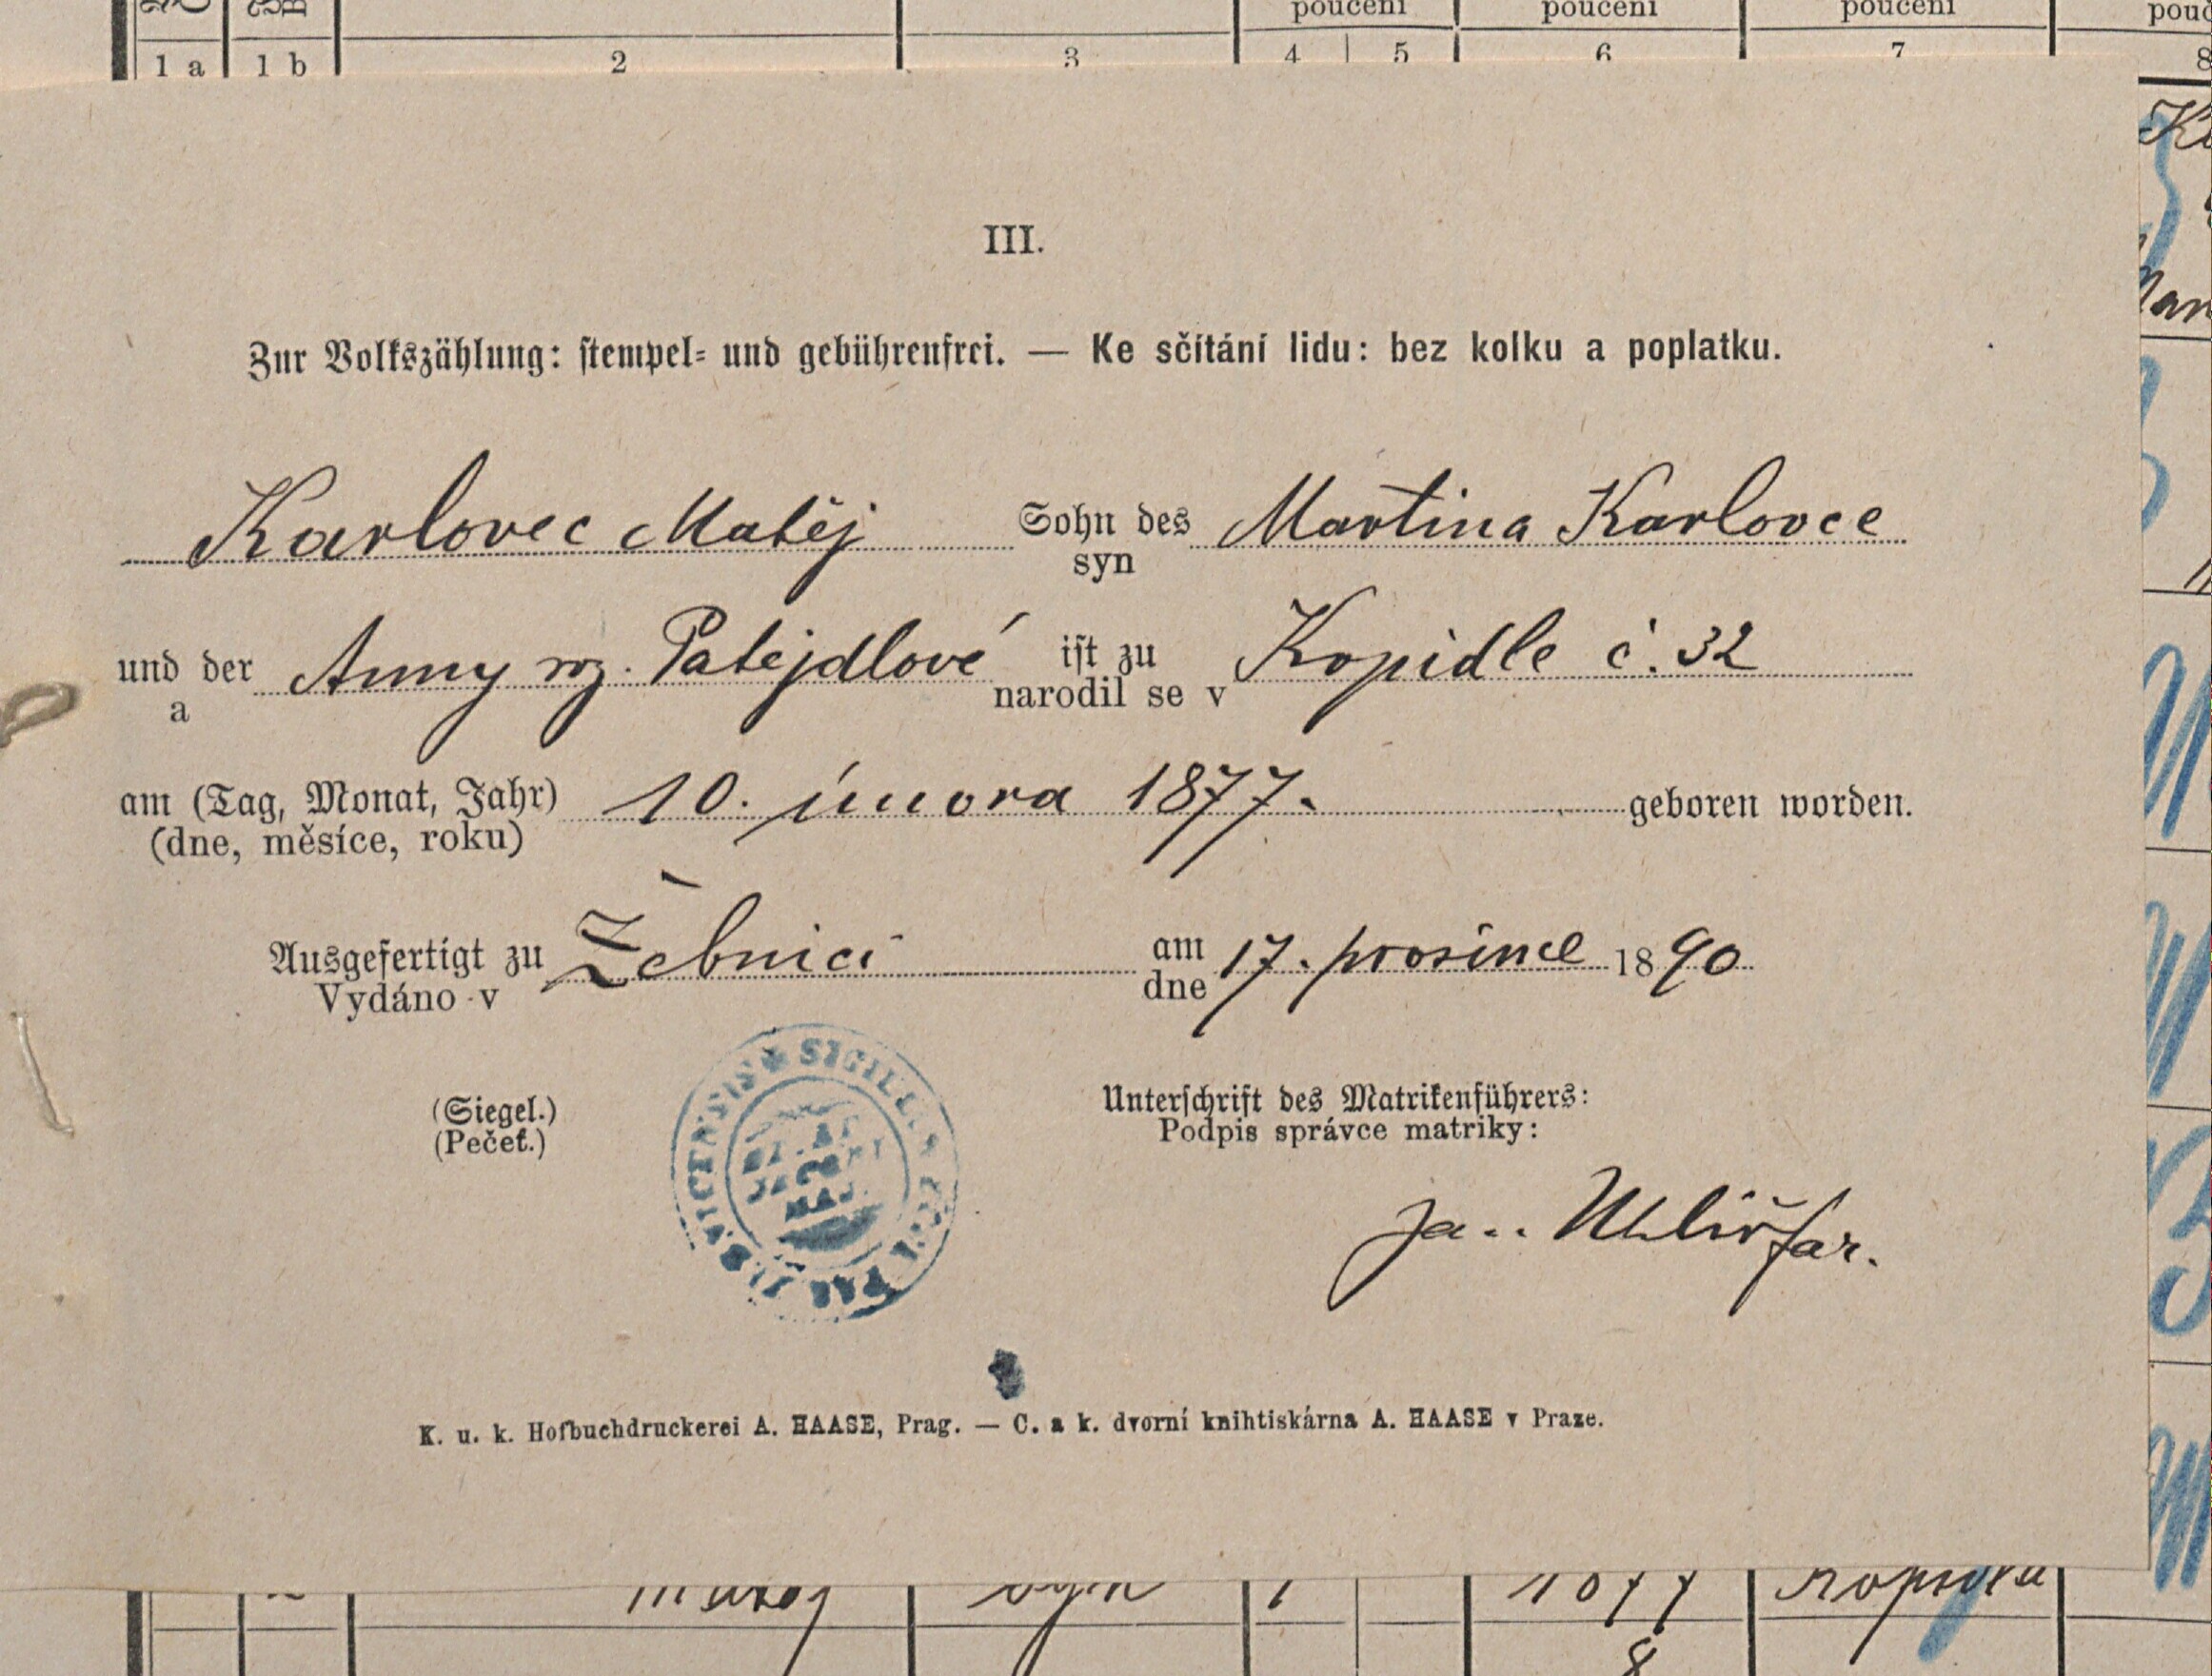 poučení poučení poučení
1 a 1 b 2 3 4 5 6 7 8
III.
Zur Volkszählung: stempel- und gebührenfrei. — Ke sčítání lidu: bez kolku a poplatku.
Karlovec Matěj Sohn des Martina Karlovce
syn
und der Anny roz. Patejdlové ist zu Kopidle č. 32
a narodil se v
am (Tag, Monat, Jahr) 10. února 1877. geboren worden.
(dne, měsíce, roku)
Ausgefertigt zu Žebnici am 17. prosince 1890
Vydáno v dne
(Siegel.) Unterschrift des Matrikenführers:
(Pečeť.) Podpis správce matriky:
Uhlíř far.
K. u. k. Hofbuchdruckerei A. HAASE, Prag. — C. a k. dvorní knihtiskárna A. HAASE v Praze.
Matěj syn 1 1877 Kopidlo